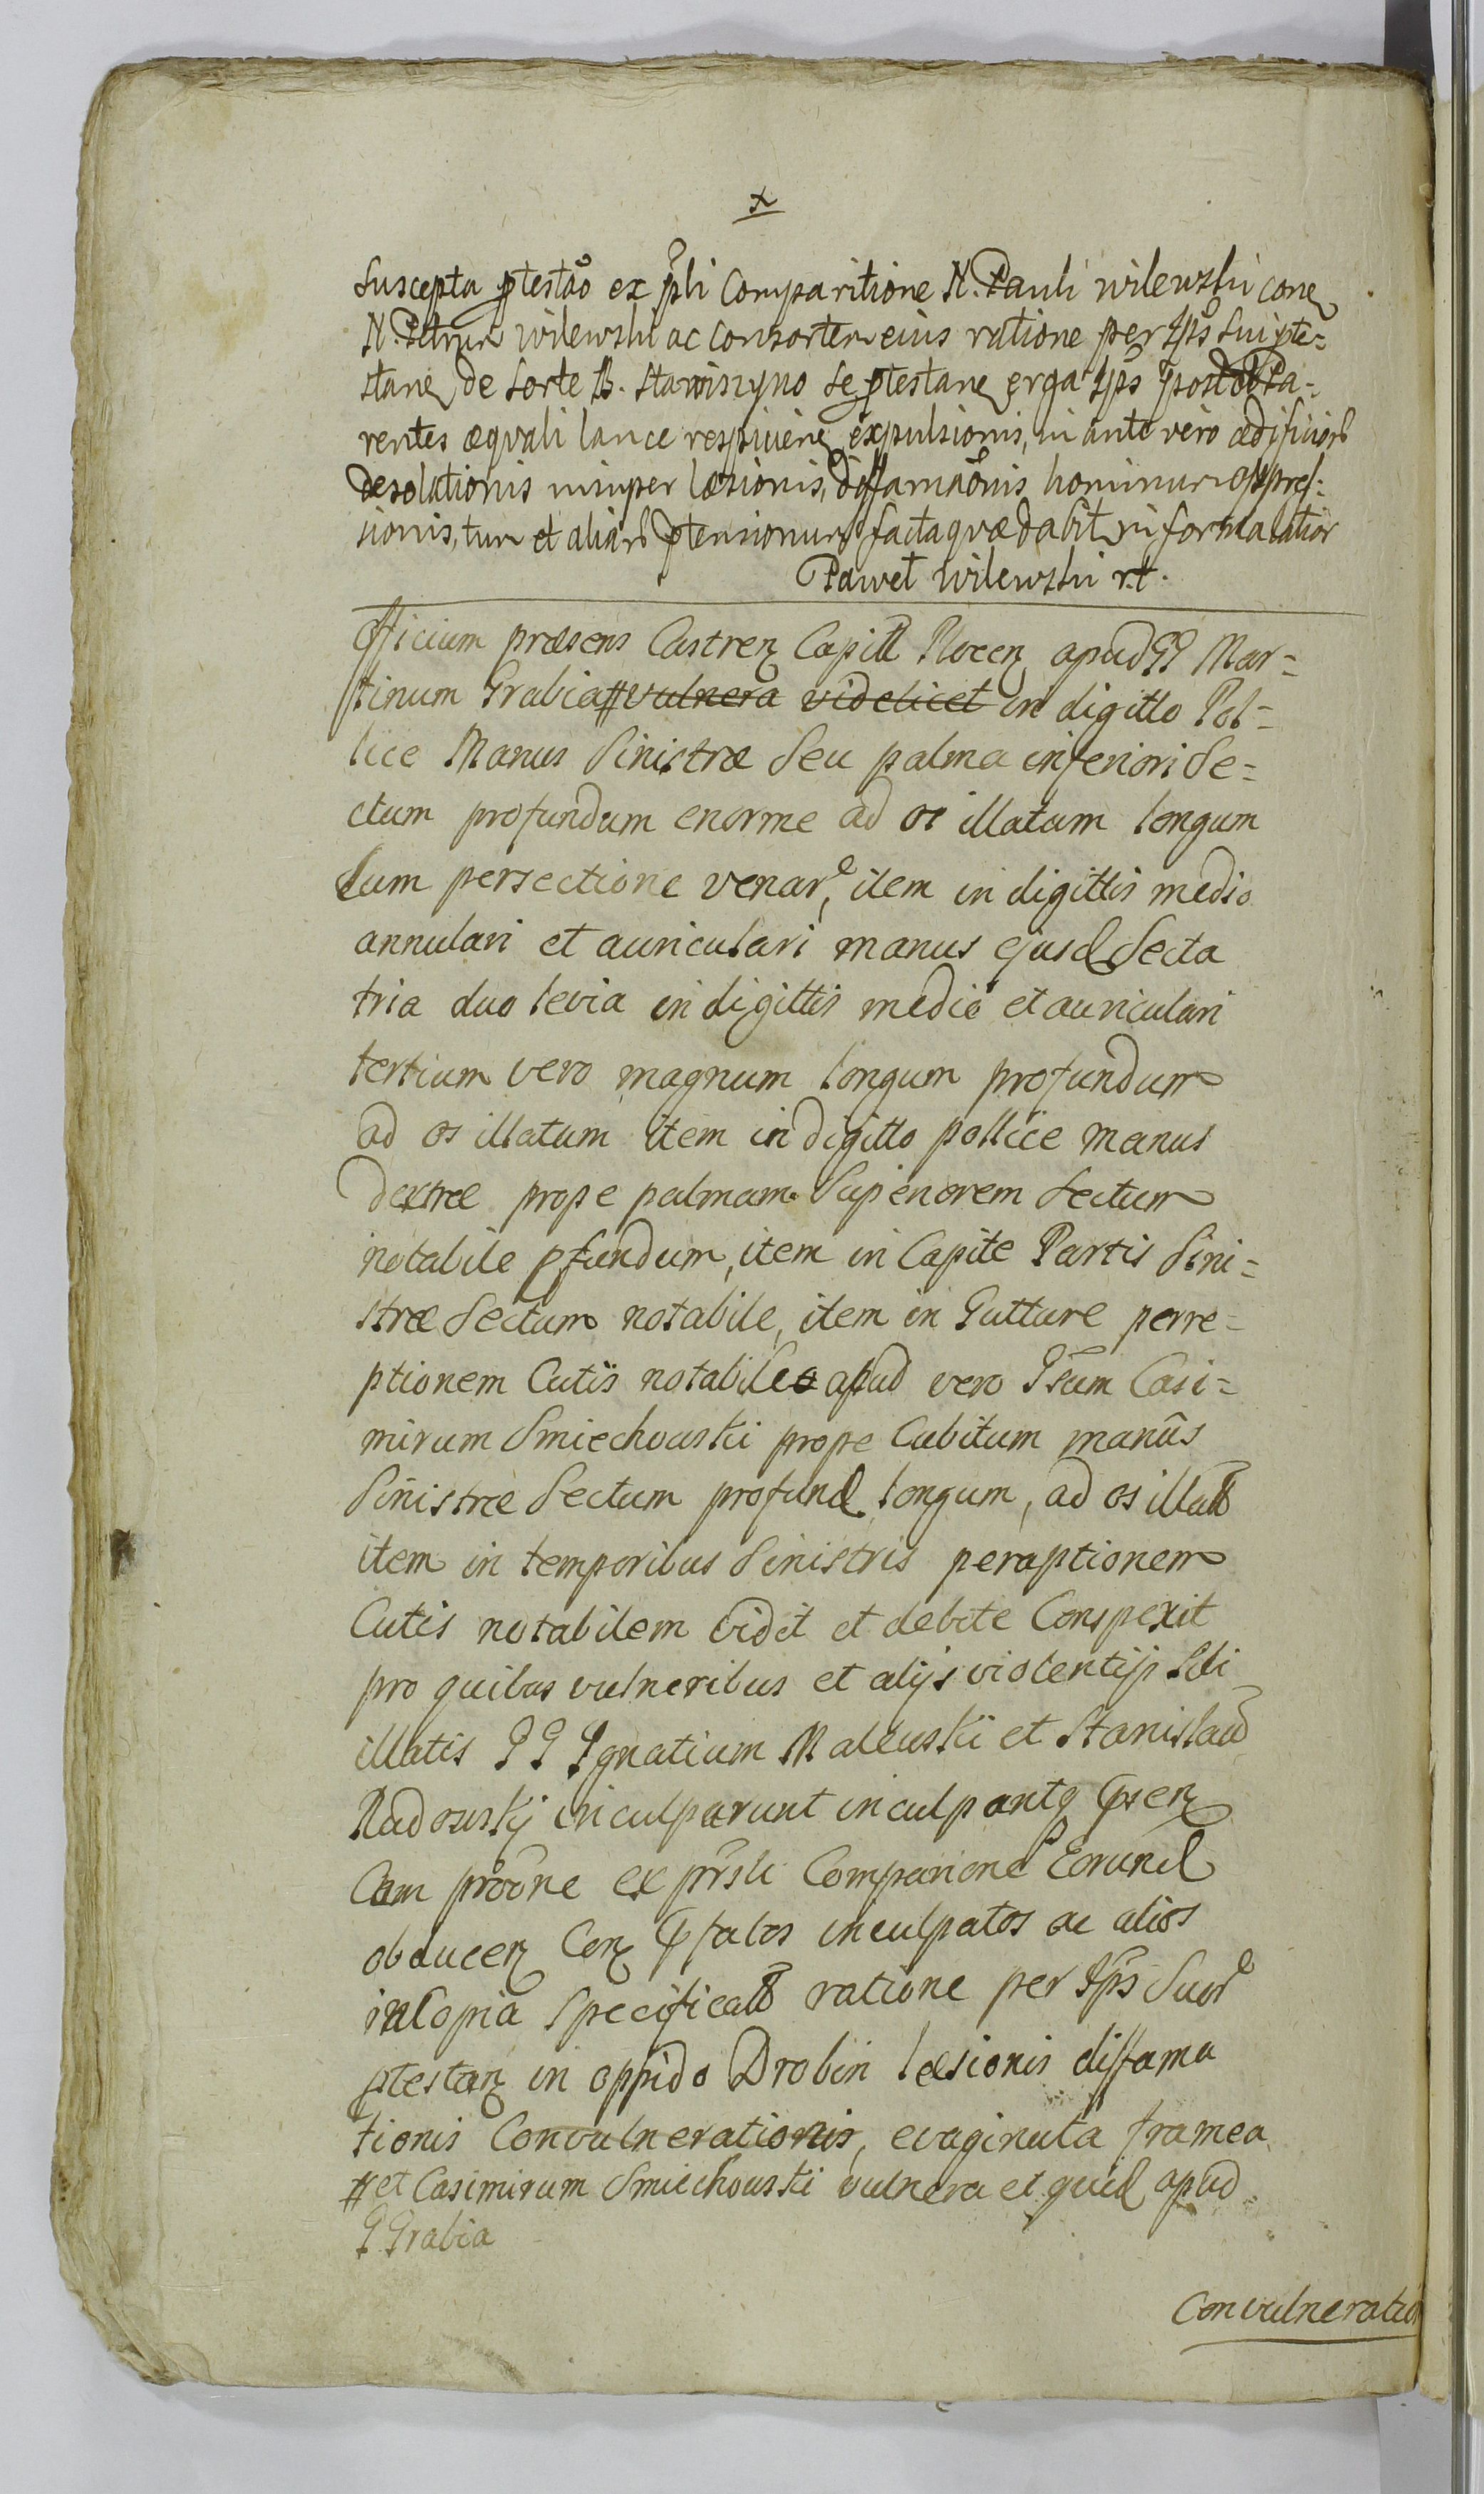 x
suscepta ptestão ex pli Comparitione N. Pauli wilewski cone
N. Petrum wilewski ac Consortem eius ratione per Ips sui pte=
stane de Sorte B. Stawiszyno se ptestane erga Ips post Pa=
rentes æquali lance respiciene expulsionis, in ante vero ædificior
desolationis nimper læsionis, diffamãonis hominum oppres=
sionis, tum et aliar ptensionum facta quæ dabit in forma latior
Paweł wilewski r.t.
Officium præsens Castren Capitl Plocen apud GG Mar=
tinum Grabia # vulnera videlicet in digitto Pol=
lice Manus Sinistræ Seu palma inferiori Se=
ctum profundum enorme ad os illatum longum
Cum persectione venar, item in digittis medio
annulari et auriculari manus ejusd Secta
tria duo levia in digittis medio et auriculari
tertium vero magnum longum profundum
ad os illatum item in digitto pollice manus
dextræ prope palmam Superiorem Sectum
notabile pfundum, item in Capite Partis Sini=
stræ Sectum notabile, item in Gutture perre=
ptionem Cutis notabile apud vero Gsum Casi=
mirum Smiechowski prope Cubitum manûs
Sinistræ Sectum profund longum, ad os illat
item in temporibus Sinistris peraptionem
Cutis notabilem vidit et debite Conspexit
pro quibus vulneribus et alijs violentijs Sibi
illatis GG Ignatium Malewski et Stanislaũ
Radowskij inculparunt inculpantq psen
Cum prõone ex prsli Comparione Eorund
obducen Con Pfatos inculpatos ac alios
in Copia Specificat ratione per Ips Suor
ptestan in oppido Drobin læsionis diffama
tionis Convulnerationis, evaginata framea
# et Casimirum Smiechowski vulnera et quid apud
G Grabia
Convulneratio